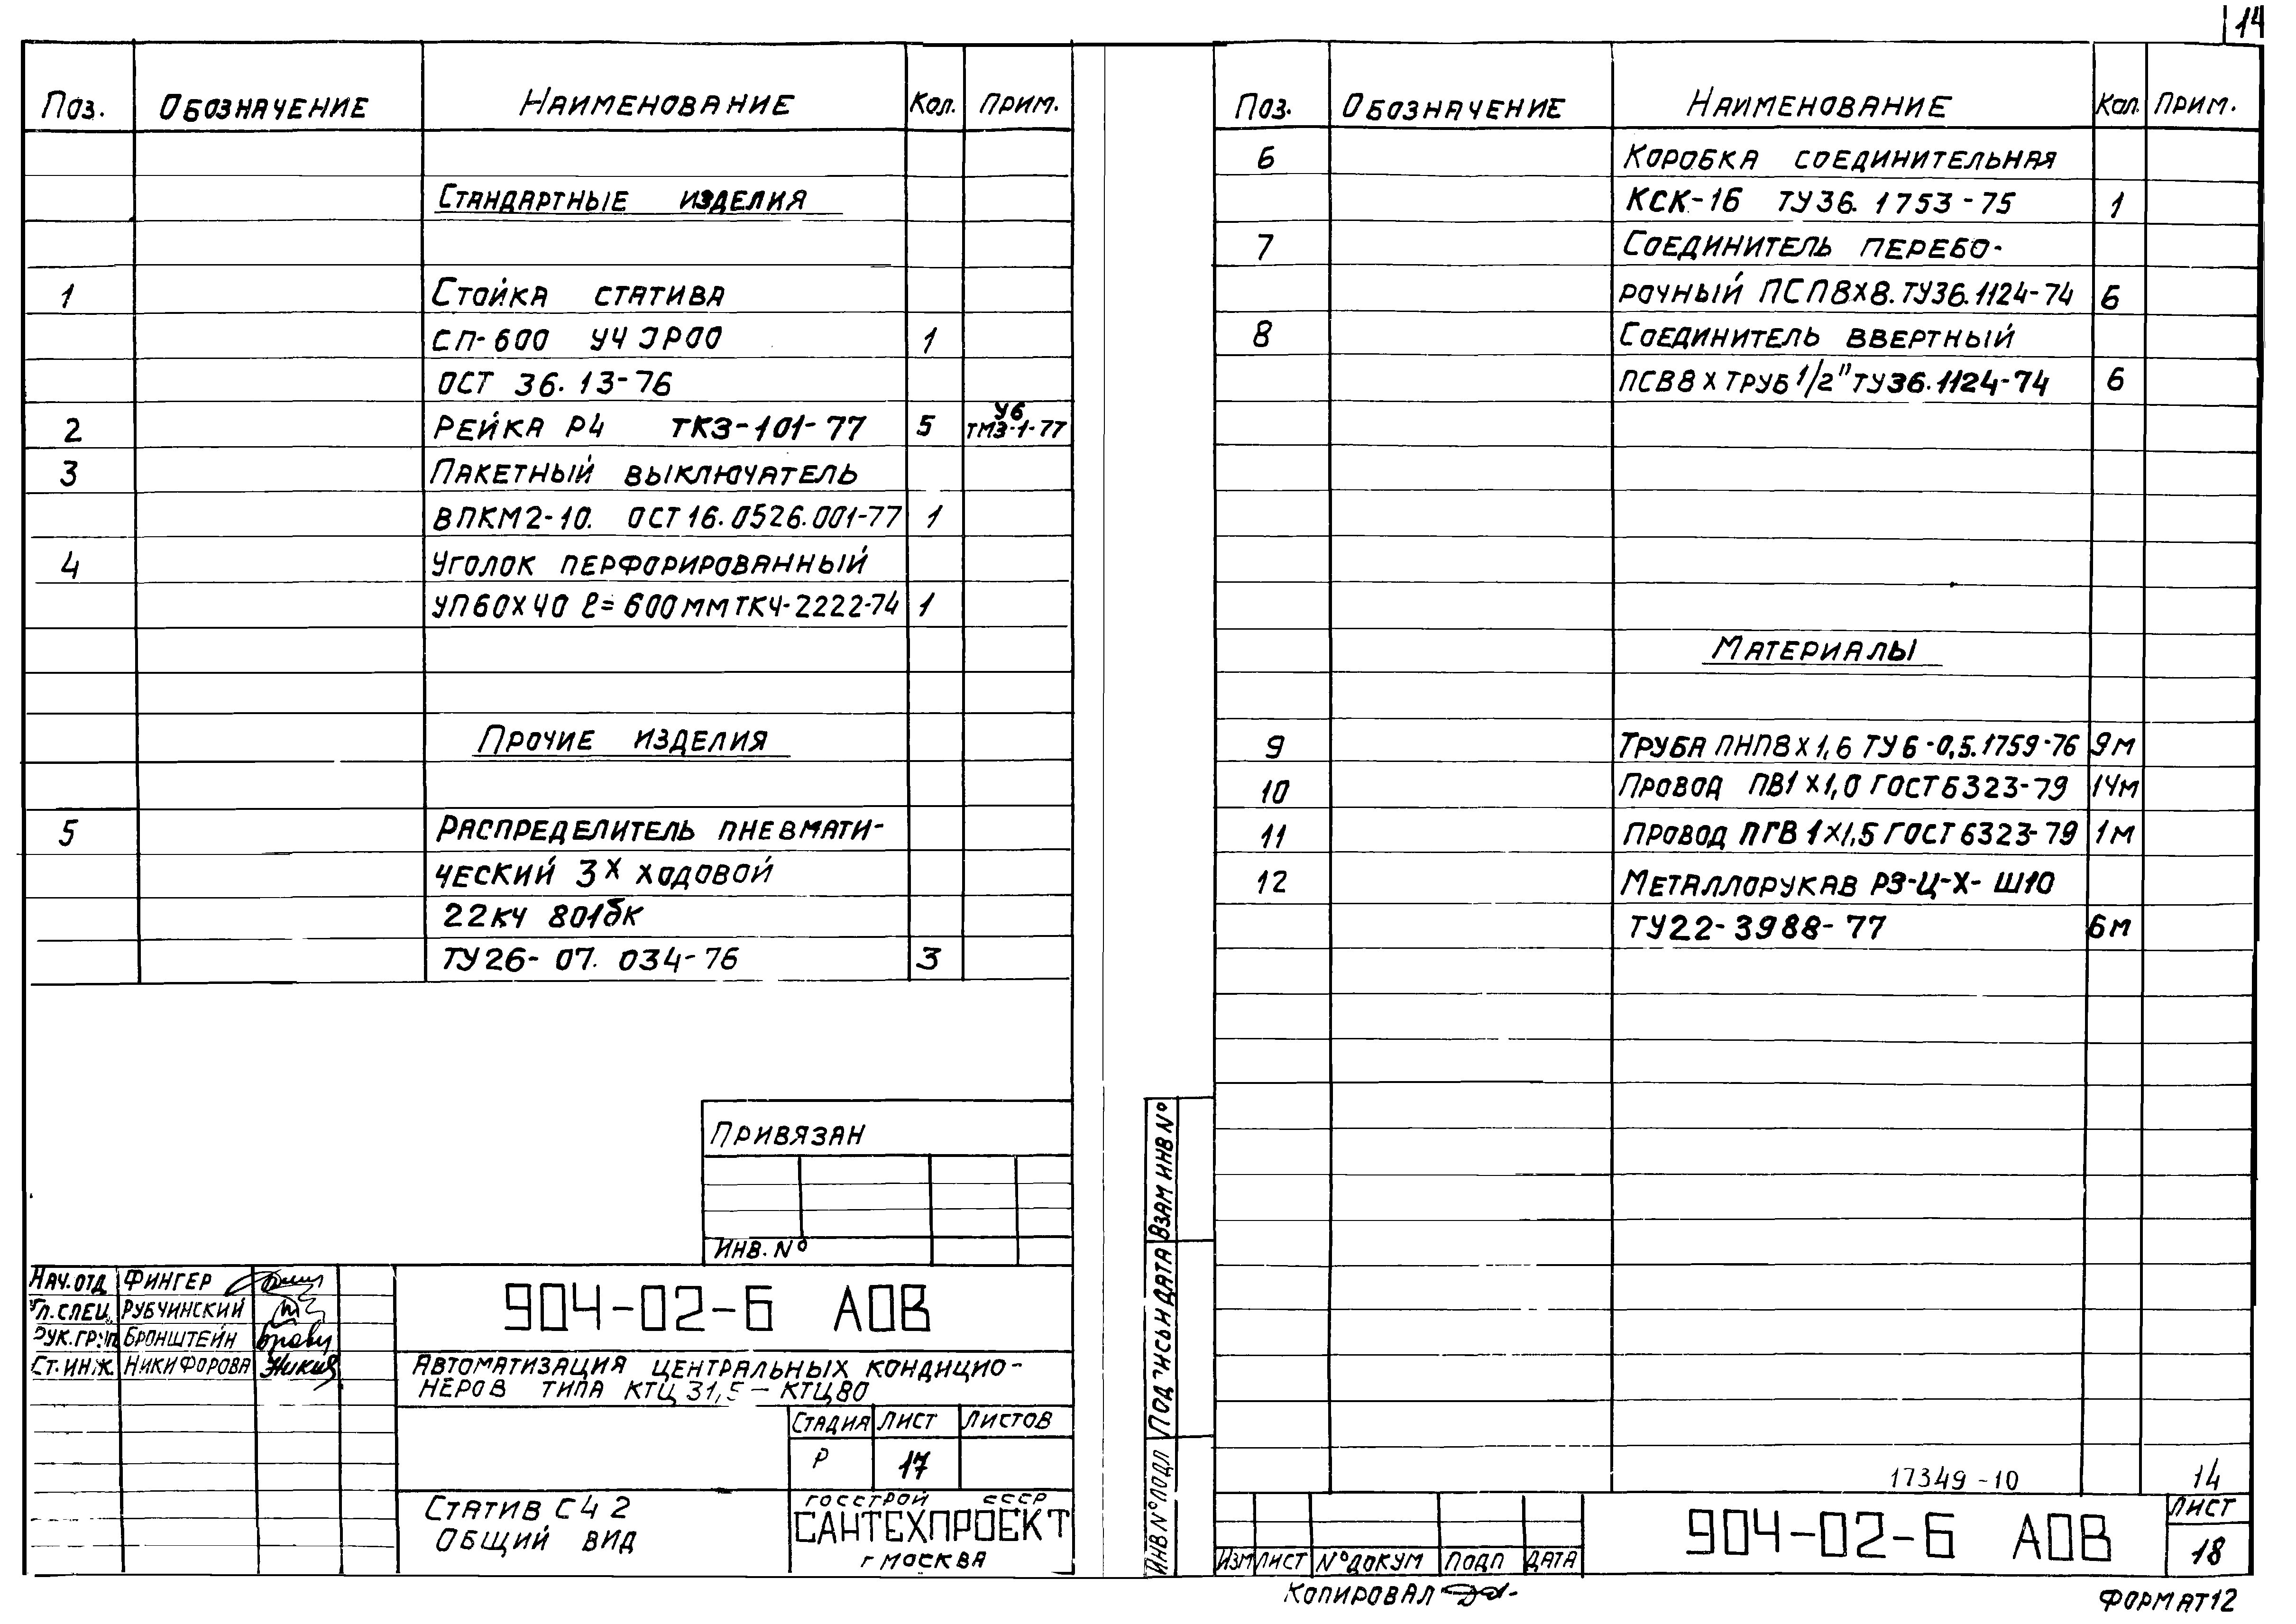 14
Поз. Обозначение Наименование Кол. Прим.
Стандартные изделия
1 Стойка статива
СП-600 УЧ ЭР00 1
ОСТ 36.13-76
2 Рейка Р4 ТК3-101-77 5 У6 ТМ3-1-77
3 Пакетный выключатель
ВПКМ2-10. ОСТ16.0526.001-77 1
4 Уголок перфорированный
УП60х40 ℓ=600мм ТК4-2222-74 1
Прочие изделия
5 Распределитель пневмати-
ческий 3х ходовой
22кч 801бк
ТУ26-07.034-76 3
Привязан
Инв. №
Нач.отд Фингер
Гл.спец. Рубчинский
Рук.груп Бронштейн
Ст.инж. Никифорова
904-02-6 АОВ
Автоматизация центральных кондицио-
неров типа КТЦ 31,5-КТЦ80
Стадия Лист Листов
Р 17
Статив С42
Общий вид
Госстрой СССР
САНТЕХПРОЕКТ
г Москва
Поз. Обозначение Наименование Кол. Прим.
6 Коробка соединительная
КСК-16 ТУ36.1753-75 1
7 Соединитель перебо-
рочный ПСП8х8. ТУ36.1124-74 6
8 Соединитель ввертный
ПСВ8 х труб 1/2" ТУ36.1124-74 6
Материалы
9 Труба ПНП8х1,6 ТУ6-0,5.1759-76 9м
10 Провод ПВ1 х1,0 ГОСТ6323-79 14м
11 Провод ПГВ 1х1,5 ГОСТ6323-79 1м
12 Металлорукав РЗ-Ц-Х-Ш10
ТУ22-3988-77 6м
17349-10 14
Взам инв №
Подпись и дата
Инв № подл
Изм Лист № докум Подп Дата
904-02-6 АОВ
Лист
18
Копировал
Формат12